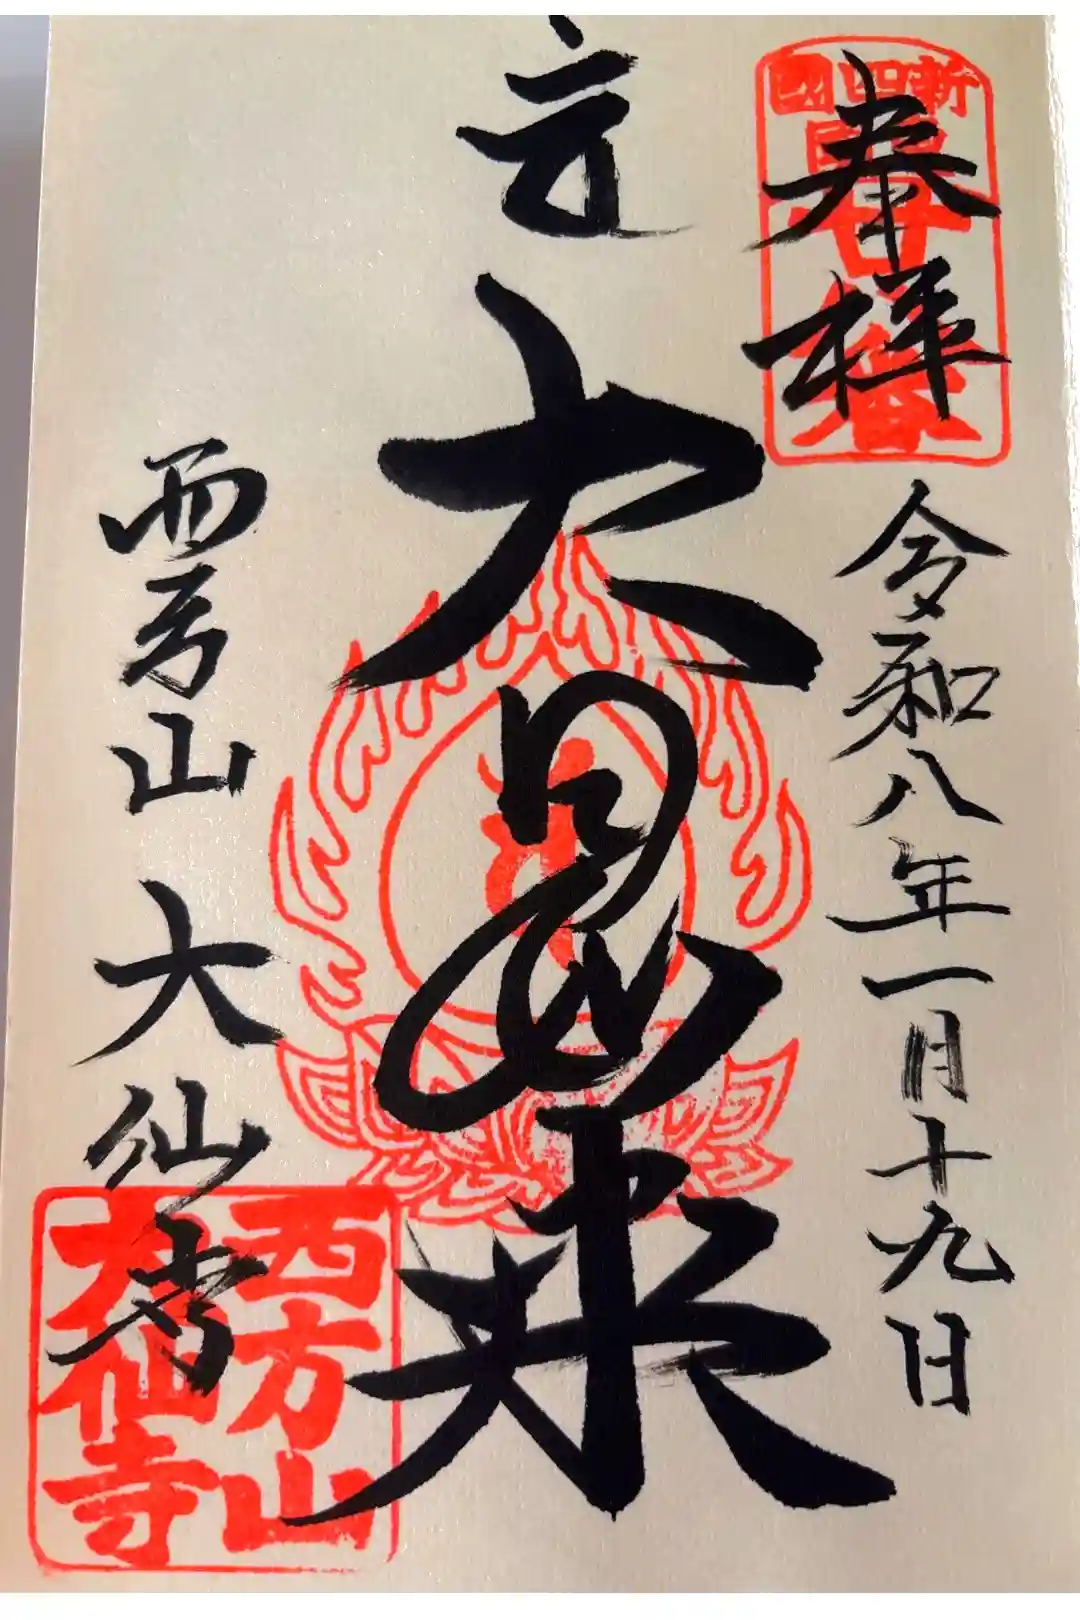 新四國
奉拝
令和八年一月十九日
大日如来
西方山 大仙寺
西方山
大仙寺